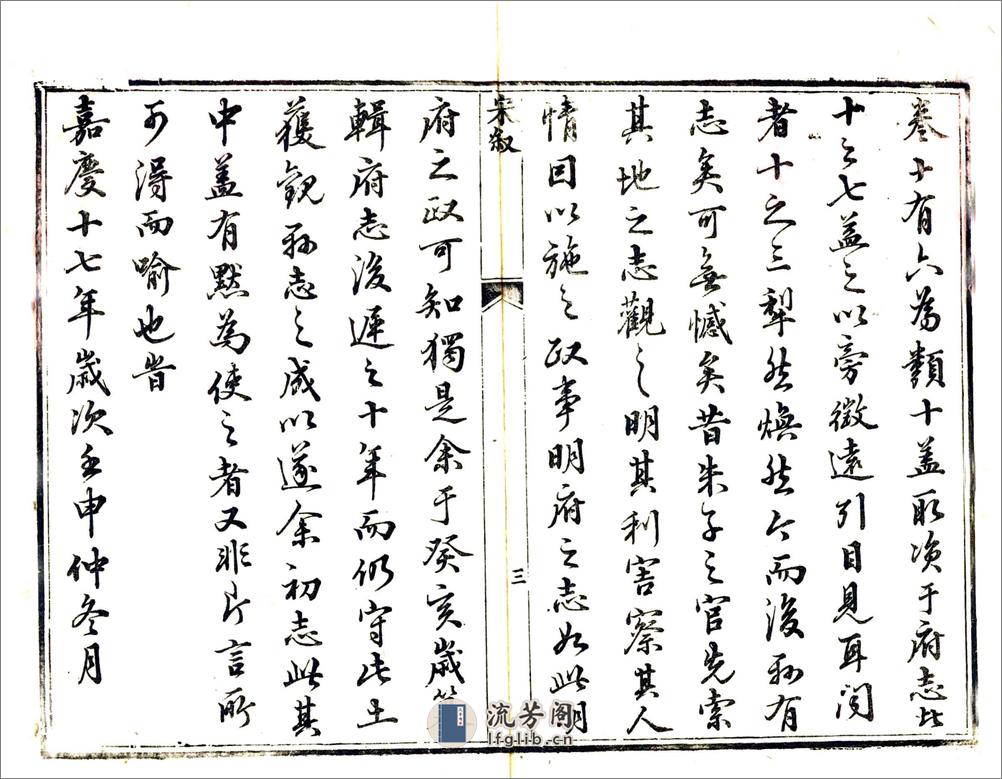 卷十有六為類十盖取資于府志者
十之七益之以旁徵遠引目見耳聞
者十之三犁然煥然今而後縣有
志矣可無憾矣昔朱子之官先索
其地之志觀之明其利害察其人
情因以施之政事明府之志如此明
宋敘
三
府之政可知獨是余于癸亥歲
輯府志後遲之十年而仍守此土
獲觀縣志之成以遂余初志此其
中盖有默為使之者又非片言所
可得而喻也旹
嘉慶十七年歲次壬申仲冬月
流芳阁
lfglib.cn